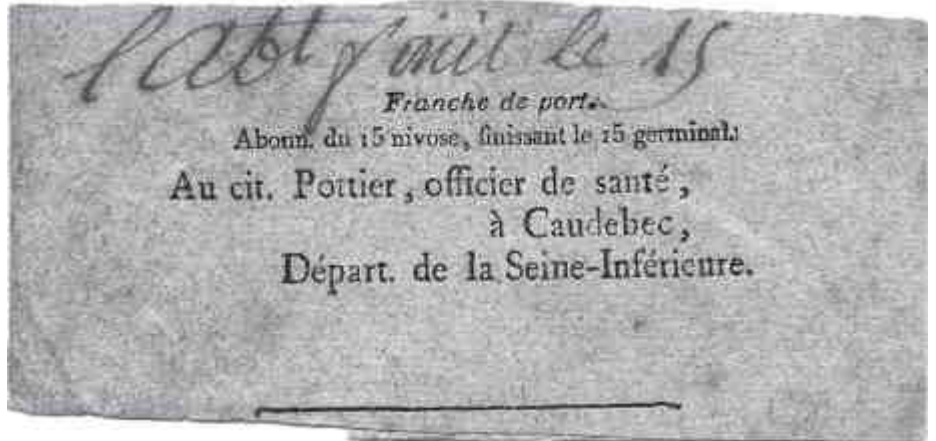 l'abt finit le 15
Franche de port.
Abonn. du 15 nivose, finissant le 15 germinal.
Au cit. Pottier, officier de santé,
à Caudebec,
Départ. de la Seine-Inférieure.